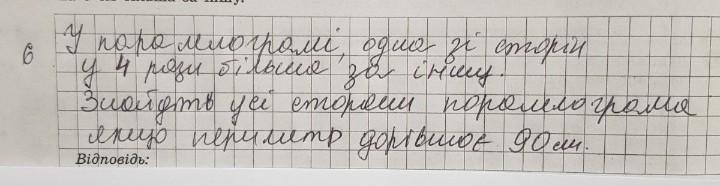 6 У паралелограмі, одна зі сторін
у 4 рази більша за іншу.
Знайдть усі сторони паралелограма
якщо периметр дорівнює 90 см.
Відповідь: